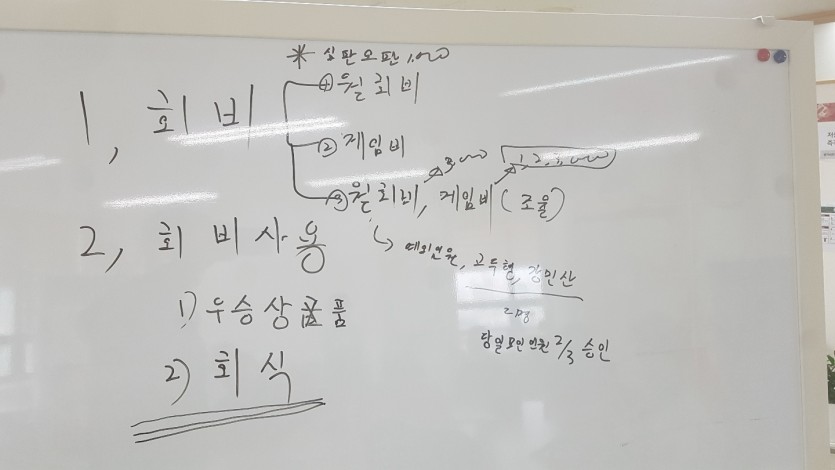 * 심판오판 1,000
1, 회비
① 월회비
② 게임비
3,000
1,2,3,000
③ 월회비, 게임비 (조율)
2, 회비사용
예외인원, 고두형, 강민산
1) 우승상품
2명
당일모인인원 2/3 승인
2) 회식